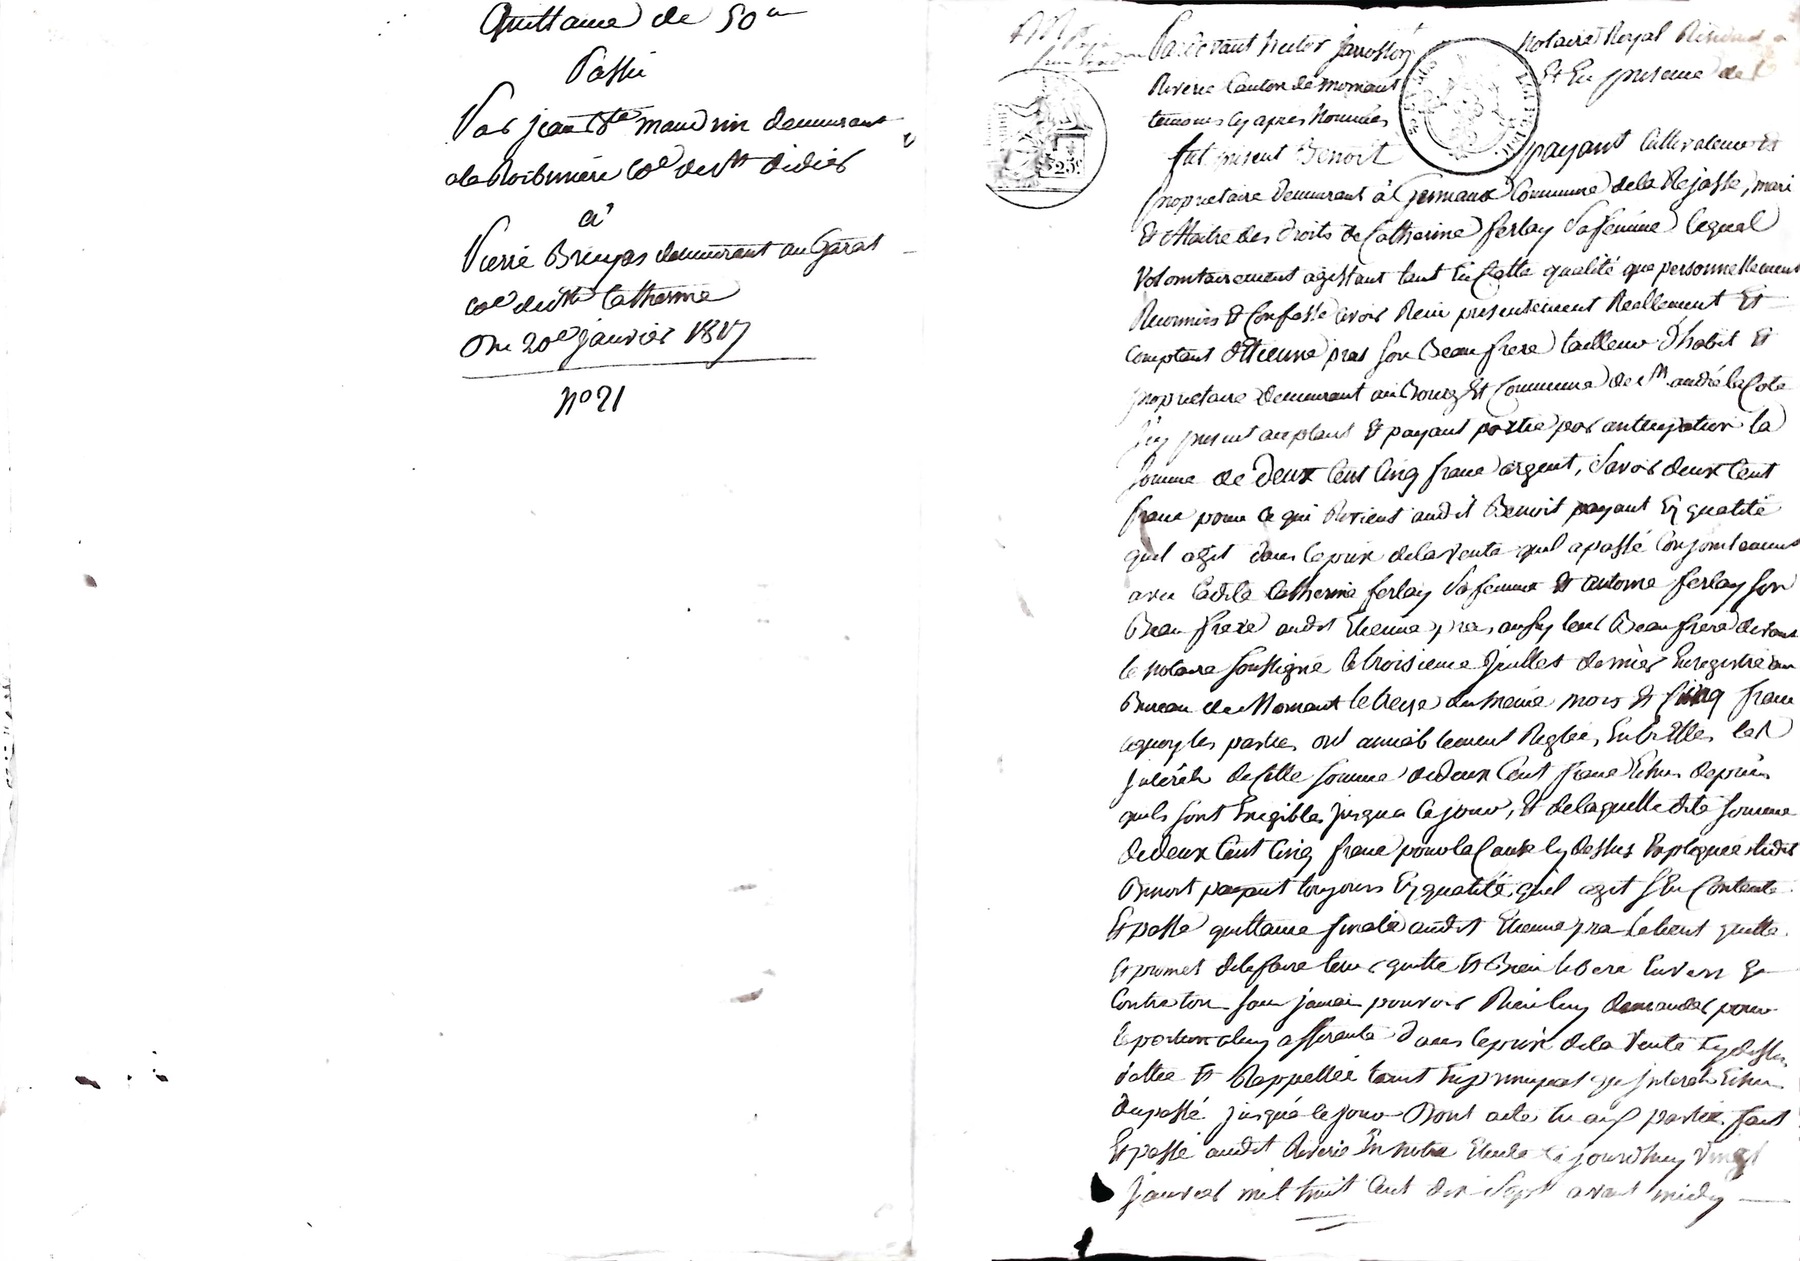 Quittance de 50 fr
Passée
Par jean Bte maudrin demeurant
a la Roibiniere Coe de St didier
à
Pierre Bruyas demeurant au Garat
coe de Ste Catherine
Du 20e janvier 1817
No 21
Pardevant hector jarrosson Notaire Royal Résidant a
Riverie Canton de mornant Et En presence des
temoins cy apres Nommés
fut present Benoit payant Cultivateur et
proprietaire demeurant à Commune de la Rejasse, mari
Et Maitre des droits de Catherine ferlay sa femme lequel
Volontairement agissant tant En Cette qualité que personnellement
Reconnois Et Confesse avoir Reçu presentement Reellement Et
comptant d'Etienne pras son Beau frere tailleur d'habit Et
proprietaire demeurant au Bourg Et Commune de St andré la Cote
Icy present acceptant Et payant partie par anticipation la
somme de Deux Cent Cinq franc argent, Savoir deux Cent
franc pour ce qui Revient audit Benoit payant En qualité
quil agit dans le prix de la vente quil a passé Conjointement
avec ladite Catherine ferlay sa femme Et antoine ferlay son
Beau frere audit Etienne pras, aussy leur Beau frere devant
le Notaire soussigné le troisieme Juillet dernier Enregistré au
Bureau de Mornant le treize du meme mois Et Cinq franc
aquoy les parties ont amiablement Reglée, Entr'Elles les
Interêts de Cette somme de deux Cent franc Echus depuis
quils sont Exigibles jusqua ce jour, Et de laquelle dite somme
de deux Cent Cinq franc pour les Cause Cy dessus Expliquée ledit
Benoit payant toujours En qualité quil agit s'En Contente
Et passe quittance finale audit Etienne pras le tient quitte
Et promet de le faire tenir quitte Et Bien libere Envers Et
Contre ton sans jamais pouvoir Rien luy demander pour
la portion a luy afferente dans le prix de la Vente Cy dessus
dattée Et Rappellée tant En principal qu'Interets Echu
du passé jusqu'à ce jour Dont acte Lu aux parties fait
Et passé audit Riverie En notre Etude Ce jourd'huy Vingt
Janvier mil huit Cent dix Sept avant midy
25c